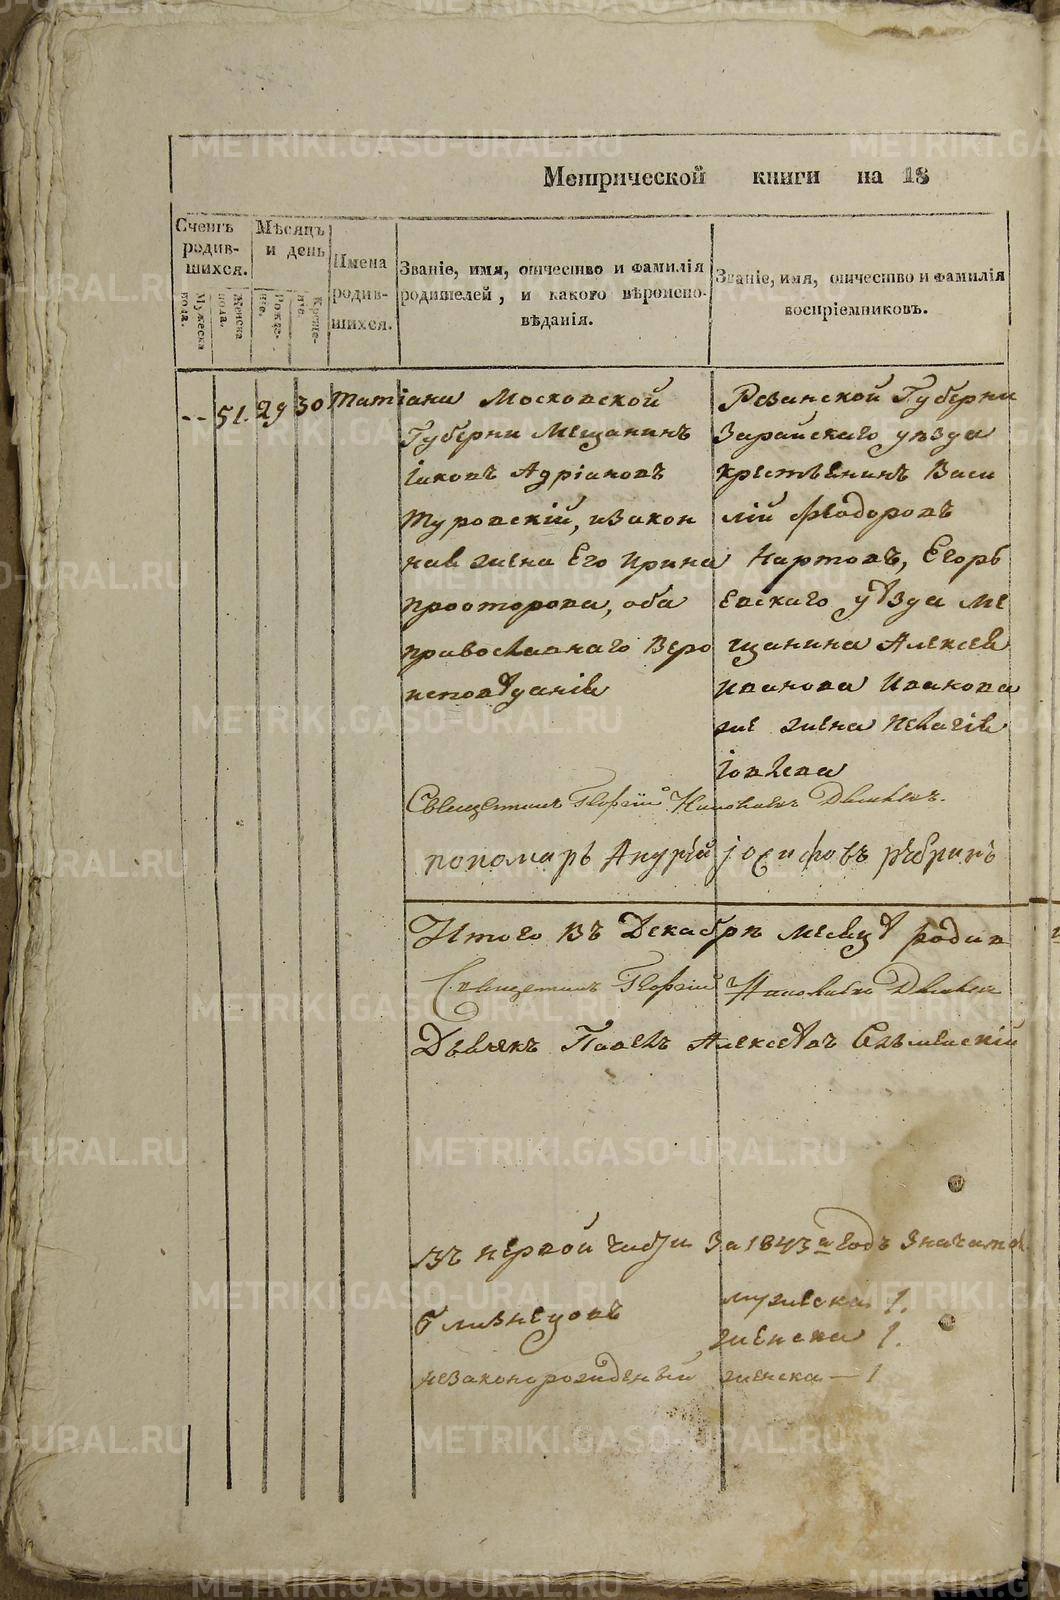 METRIKI.GASO-URAL.RU
Метрической книги на 18
Счетъ родив-шихся.
Мужеска пола.
Женска пола.
Мѣсяцъ и день
Рожде-ніе.
Креще-ніе.
Имена родив-шихся.
Званіе, имя, отчество и фамилія
родителей, и какого вѣроиспо-
вѣданія.
Званіе, имя, отчество и фамилія
воспріемниковъ.
-- 51. 29 30 Татіана
Московской
Губерни Мещанинъ
Іаковъ Адріановъ
Туровскій, изакон
ная жена Его Ирина
Просторова, оба
православнаго Веро
исповѣданія
Резанской Губерни
Зарайскаго уѣзда
крестьенинъ Васи
лій Феодоровъ
Картовъ, Егорь
евскаго уѣзда ме
щанина Алексея
Иванова Иванова
же жена Пелагія
Іовлева
Священникъ Георгій Николаевъ
пономарь Андрій Іосифовъ рѣбринъ
Итого въ Декабрѣ месяцѣ родив
Священникъ Георгій Николаевъ
Дьячекъ Павелъ Алексѣевъ
въ первой части За 1843й годъ Значится
близнецовъ мужеска 1.
женска 1.
незаконорожденный женска — 1